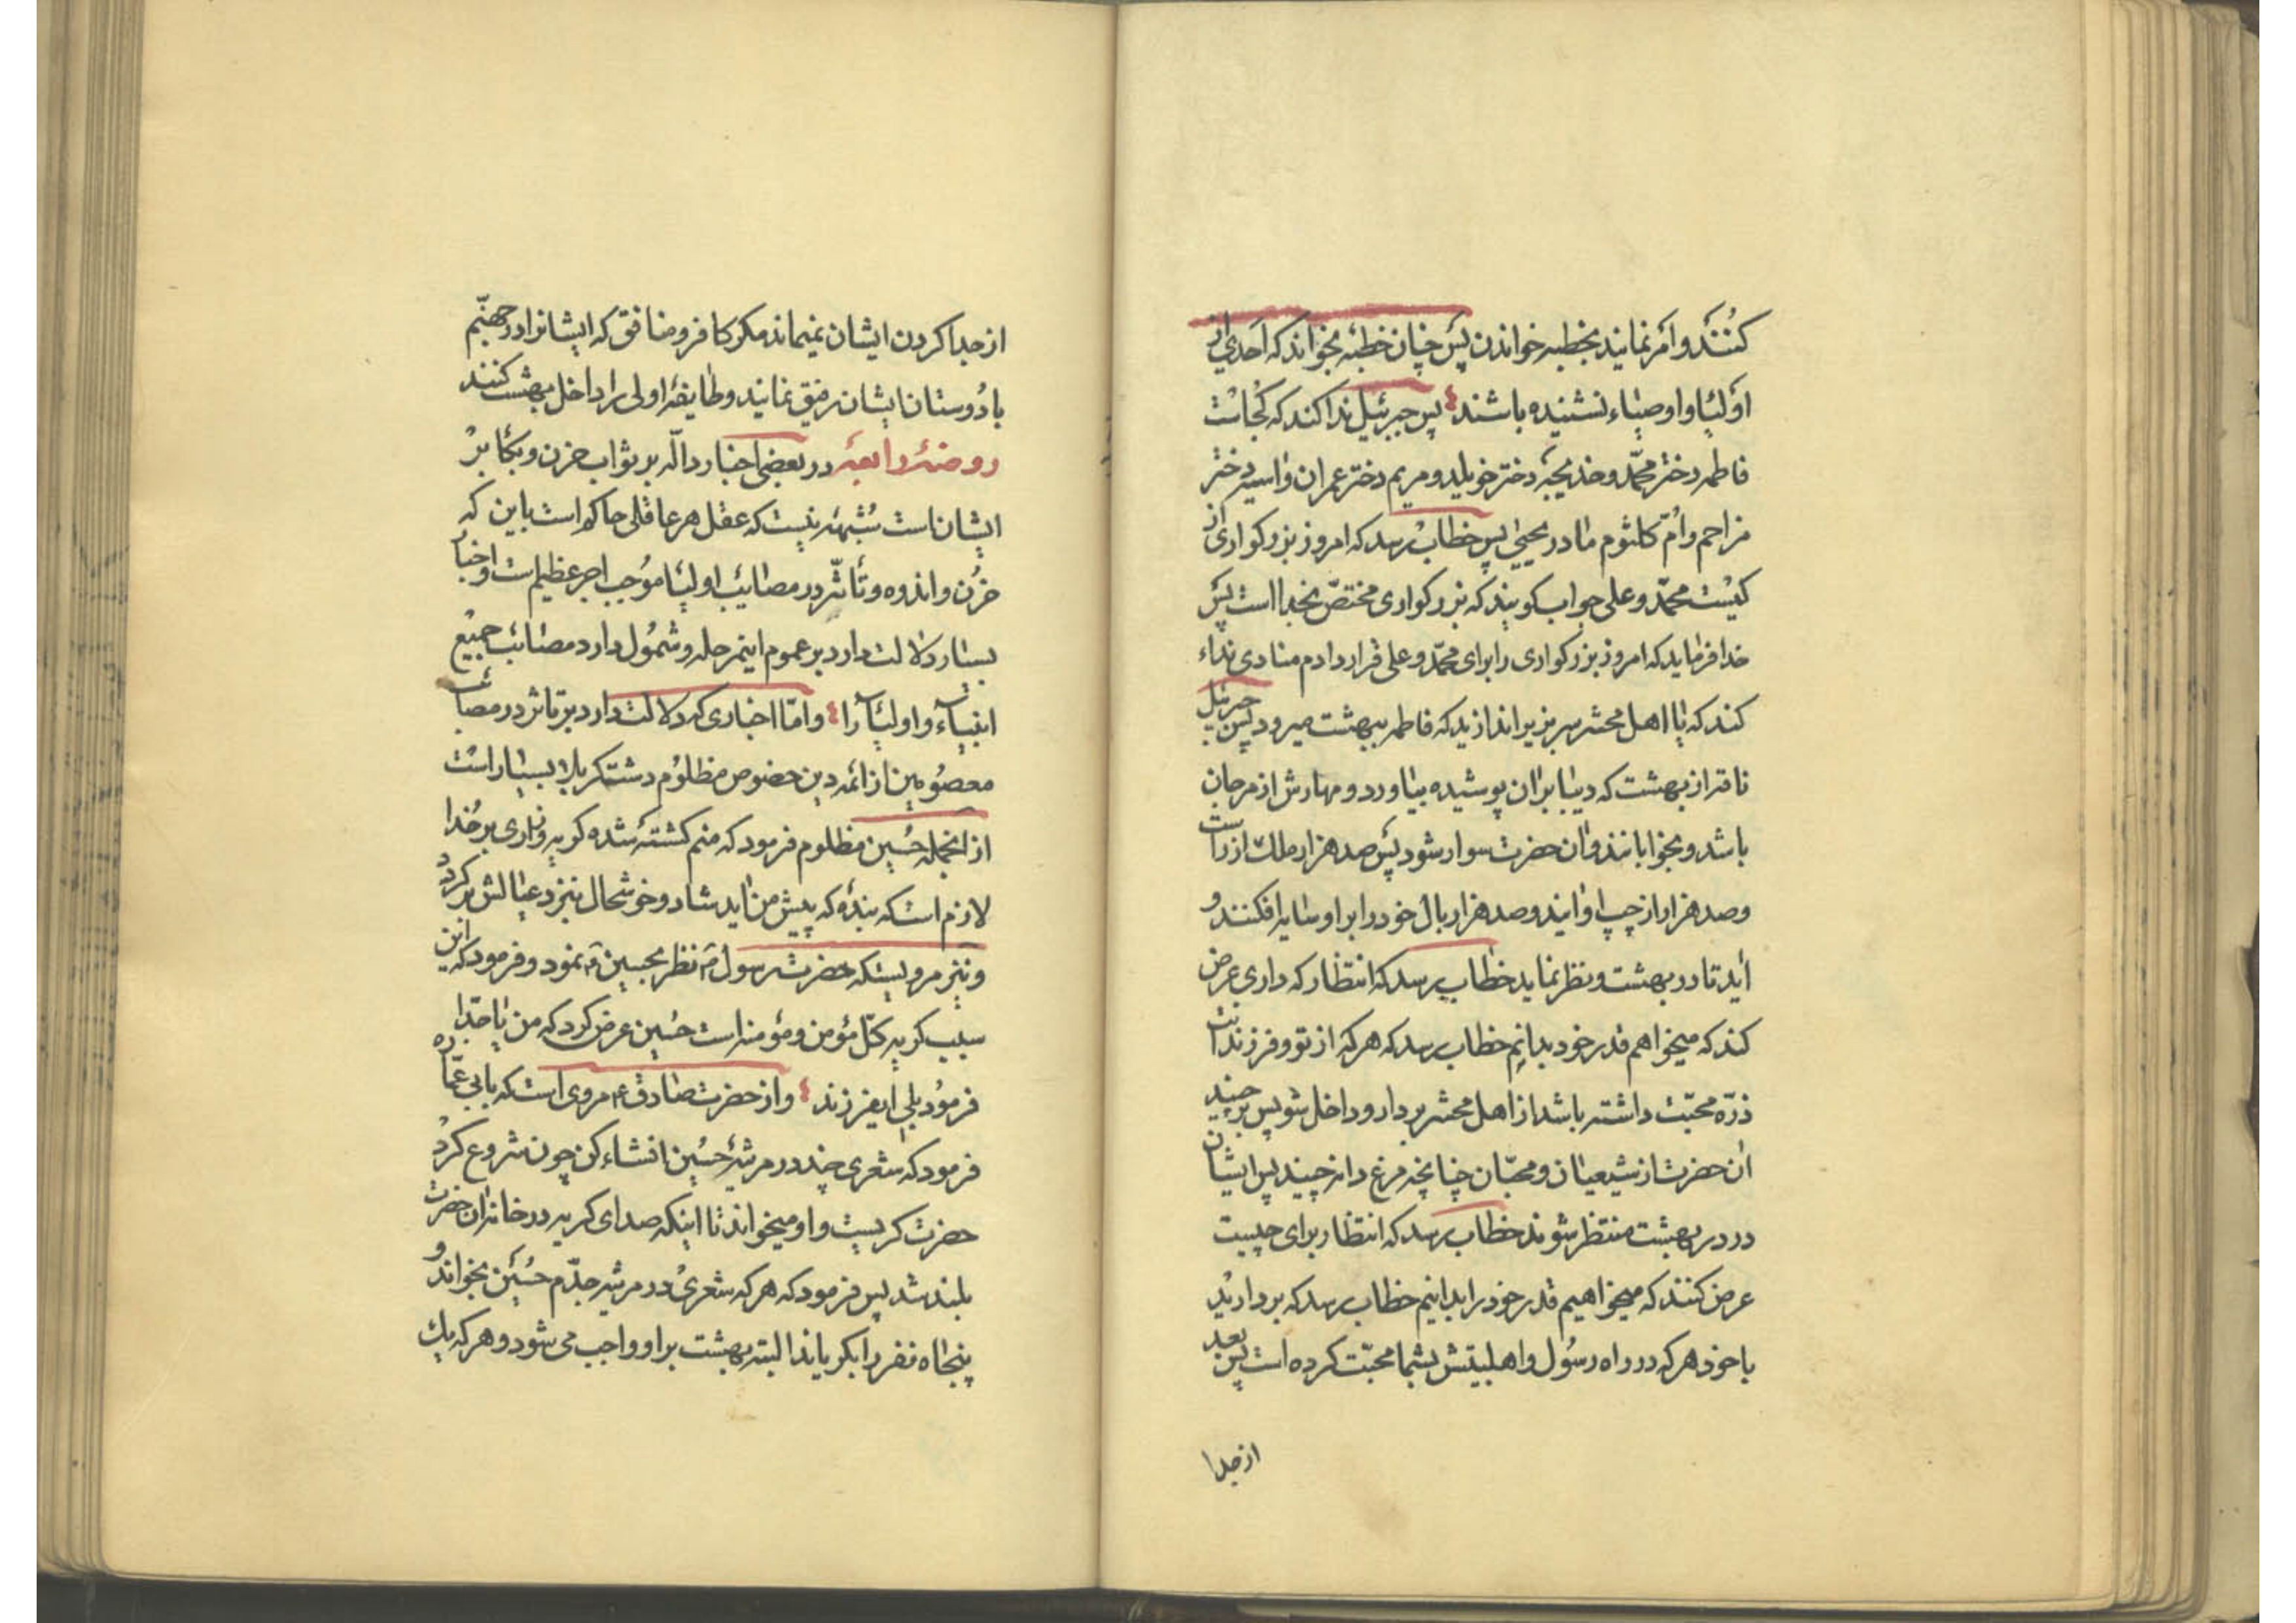 کنند و امر نمایند بخطبه خواندن پس چنان خطبه بخواند که احدی از
اولیا و اوصیاء نشنیده باشند پس جبرئیل ندا کند که کجاست
فاطمه دختر محمّد و خدیجه دختر خویلد و مریم دختر عمران و اسیه دختر
مزاحم و امّ کلثوم مادر یحیی پس خطاب رسد که امروز بزرکواری از
کیست محمّد و علی جواب کویند که بزرکواری مختصّ بخدا است پس
خدا فرماید که امروز بزرکواری را برای محمّد و علی قرار دادم منادی نداء
کند که یا اهل محشر سر بزیر اندازید که فاطمه ببهشت میرود پس جبرئیل
ناقه از بهشت که دیبا بران پوشیده بیاورد و مهارش از مرجان
باشد و بخوابانند و ان حضرت سوار شود پس صد هزار ملک از راست
و صد هزار از چپ او ایند و صد هزار بال خود را بر او سایه افکنند و
اید تا در بهشت و نظر نماید خطاب رسد که انتظار که داری عرض
کند که میخواهم قدر خود بدانم خطاب رسد که هر که از تو و فرزندانت
ذرّه محبّت داشته باشد از اهل محشر بردار و داخل شو پس برچیند
ان حضرت از شیعیان و محبّان چنانچه مرغ دانه چیند پس ایشان
در در بهشت منتظر شوند خطاب رسد که انتظار برای چیست
عرض کنند که میخواهیم قدر خود را بدانیم خطاب رسد که بردارید
با خود هر که در راه رسول و اهلبیتش بشما محبّت کرده است پس بعد
از جدا
از جدا کردن ایشان نمیماند مکر کافر و منافق که ایشانرا در جهنّم
با دوستان ایشان رفیق نمایند و طایفه اولی را داخل بهشت کنند
روضهٔ رابعهٔ در بعضی اخبار دالّه بر ثواب حزن و بکا بر
ایشان است شبهه نیست که عقل هر عاقلی حاکم است باین که
حزن و اندوه و تأثّر در مصایب اولیا موجب اجر عظیم است و اخبار
بسیار دلالت دارد بر عموم اینمرحله و شمول دارد مصائب جمیع
انبیاء و اولیا را و امّا اخباری که دلالت دارد بر تاثر در مصائب
معصومین از ائمه دین خصوص مظلوم دشت کربلا بسیار است
از انجمله حسین مظلوم فرمود که منم کشته شده کریه و زاری بر خدا
لازم است که بنده که پیش من اید شاد و خوشحال بنزد عیالش بر کردد
و نیز مرویست که حضرت رسول ص نظر بحسین ع نمود و فرمود که این
سبب کریه کلّ مؤمن و مؤمنه است حسین عرض کرد که من یا جدّاه
فرمود بلی ایفرزند و از حضرت صادق ع مروی است که بابی عمّاره
فرمود که شعری چند در مرثیه حسین انشاء کن چون شروع کرد
حضرت کریست و او میخواند تا اینکه صدای کریه در خانه ان حضرت
بلند شد پس فرمود که هر که شعری در مرثیه جدّم حسین بخواند و
پنجاه نفر را بکریاند البته بهشت بر او واجب می شود و هر که یک